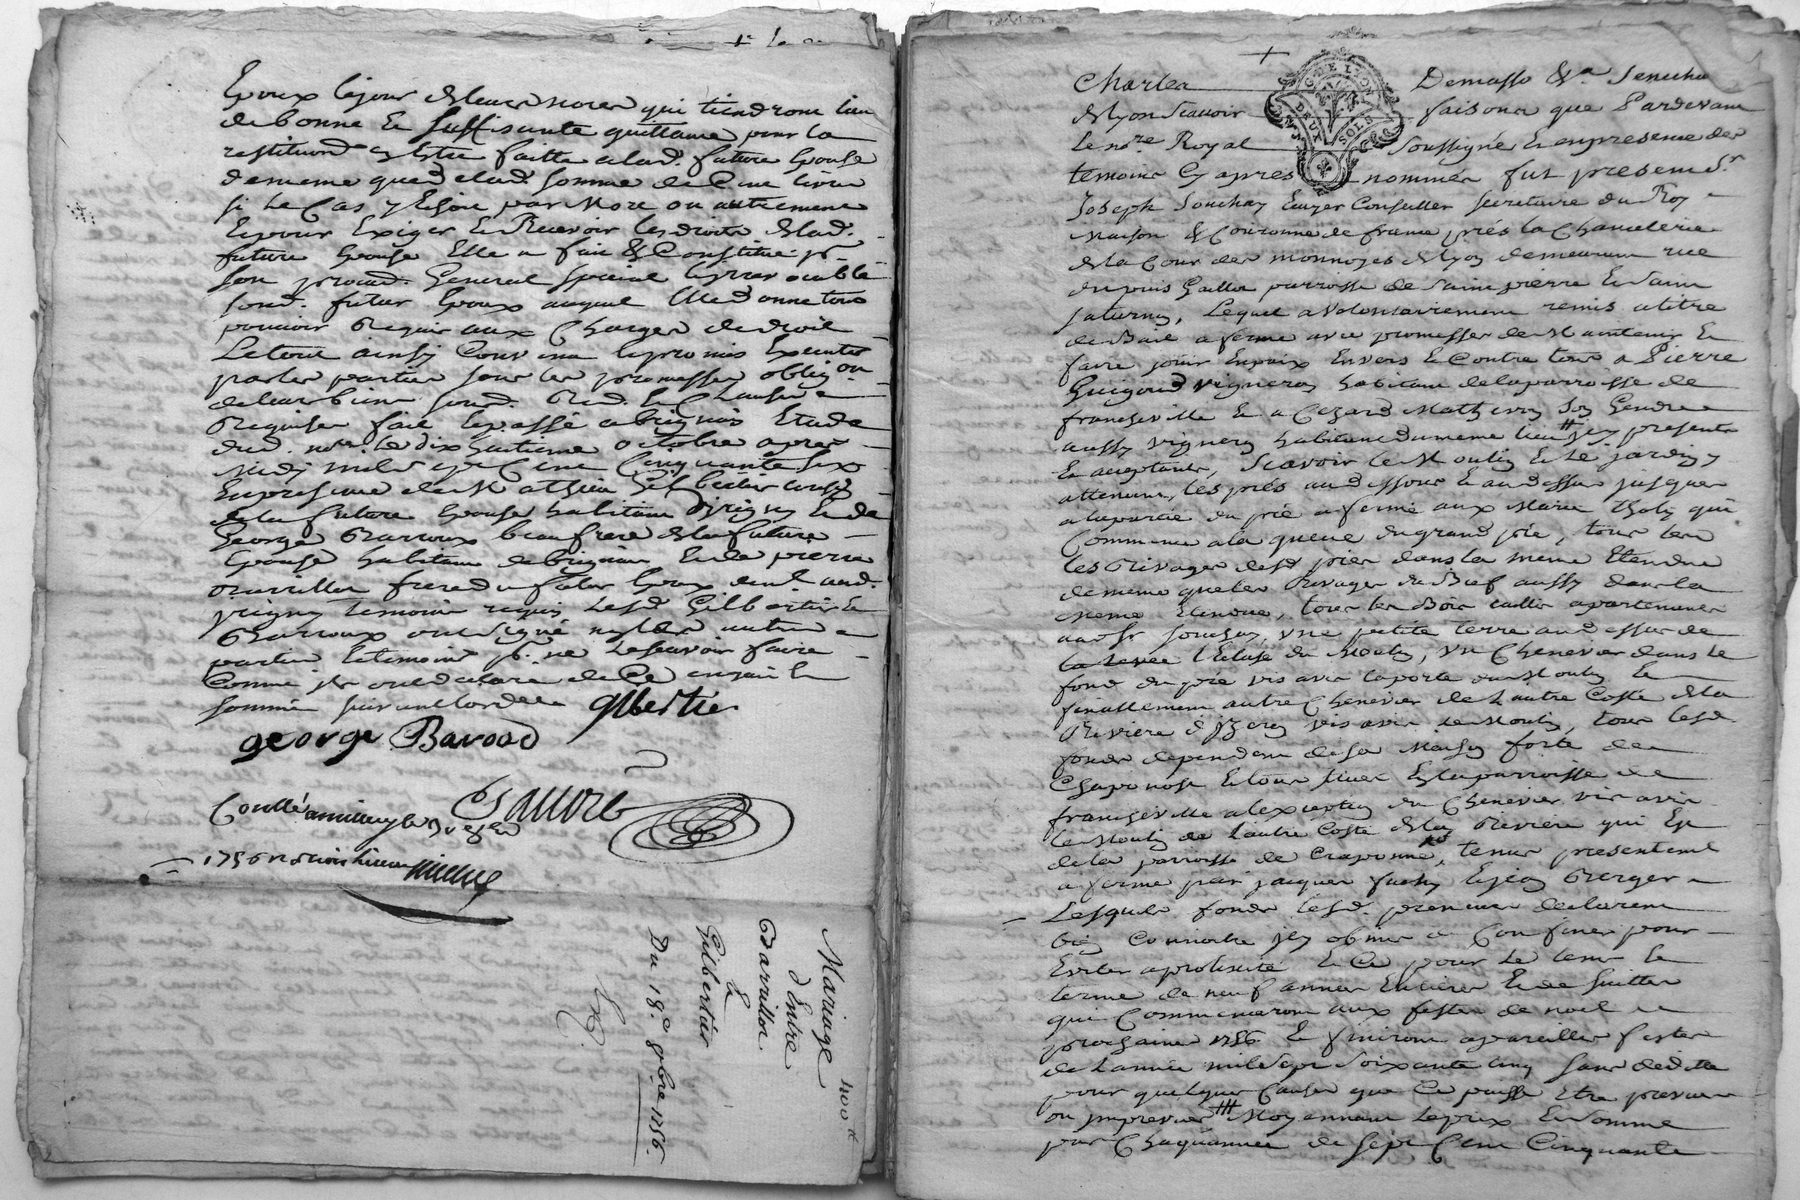 Epoux le jour de leurs noces qui tiendront lieu
de bonne et suffisante quittance pour la
restitu͠on en être faitte a lad. future Epouse
de meme que de lad. somme de Cent livres
si le Cas y Echoit par More ou autrement
Et pour Exiger et Recevoir les droits de lad.
future Epouse Elle a fait & Constitué pr.
son procur. General special & irrevocable
sond. futur Epoux auquel Elle donne tous
pouvoir Requis aux Charges de droit
Le tout ainsy Convenu et promis Executer
par les parties sous les promesses oblig͠on
de leur biens soumd. Ren. et Clauses
Requises fait et passé a brignais Etude
dud. nore. le dix huitieme octobre apres
midy mil sept Cent Cinquante six
En presence de Mathieu Gilbertier
de la future Epouse habitant d'irigny et de
George Barroux beaufrere de la future
Epouse habitant de brignais Et de pierre
frere du futur Epoux
yrigny temoins requis Lesd. Gilbertier Et
Barroux ont signé non les autres
parties Et temoins pr. ne le scavoir faire
Comme ils ont declaré de Ce enquis Et
sommés suivant lordce
gilbertier
george Barood
Conllé a millery le
1756
Mariage
d'Entre
&
Gilbertier
Du 18.e 8bre 1756.
400 #
Charles Demasso &a. Senechal
de lyon scavoir faisons que Pardevant
le nore Royal soussigné Et en presence des
temoins Cy apres nommés fut present Sr.
Joseph Souchay Ecuyer Conseiller secretaire du Roy
Maison & Couronne de france prés la Chancelerie
de la Cour des monnoyes de lyon demeurant rue
du puis Gaillot parroisse de saint pierre Et saint
saturny, Lequel a volontairement remis a titre
de Bail a ferme avec promesses de Maintenir Et
faire jouir En paix Envers Et Contre tous a Pierre
Guigoud vigneron habitant de la parroisse de
francheville Et a Cezard Mathevon son Gendre
aussy vigneron habitant du meme lieu # icy presents
Et acceptants, scavoir le Moulin Et le jardin y
attenant, les prés au dessous Et au dessus jusques
a la partie du pré a fermé aux Marie qui
Commence a la queue du grand pré, tous les
les Rivages desd. prés dans la meme Etendue
de meme que les Rivages du Bief aussy dans la
meme Etendue, tous les Bois taillis apartenant
aud sr. Souchay, une petite terre au dessus de
la levée l'Ecluse du Moulin, un Chenevier dans le
fond du pré vis avis la porte du Moulin Et
finallement autre Chenevier de l'autre Costé de la
Riviere d'Izeron vis avis le Moulin, tous lesd.
fonds dependant de sa Maison forte de
Chaponost Et tous situés En la parroisse de
francheville a l'exception du Chenevier vis avis
le Moulin de l'autre Costé de lad. Riviere qui Est
de la parroisse de Craponne, tenus presentement
a ferme par jacques Et jean Berger
Lesquels fonds lesd. preneurs declarent
bien Connoitre
Eviter a prolixité Et Ce pour le tems Et
terme de neuf années Entieres Et de suittes
qui Commenceront aux festes de noel
prochaines 1756 Et finiront a pareilles festes
de l'année mil sept soixante cinq sans dedite
pour quelques Causes que Ce puisse Etre prevues
ou imprevues # Moyennant le prix Et somme
par Chaque année de sept Cent Cinquante